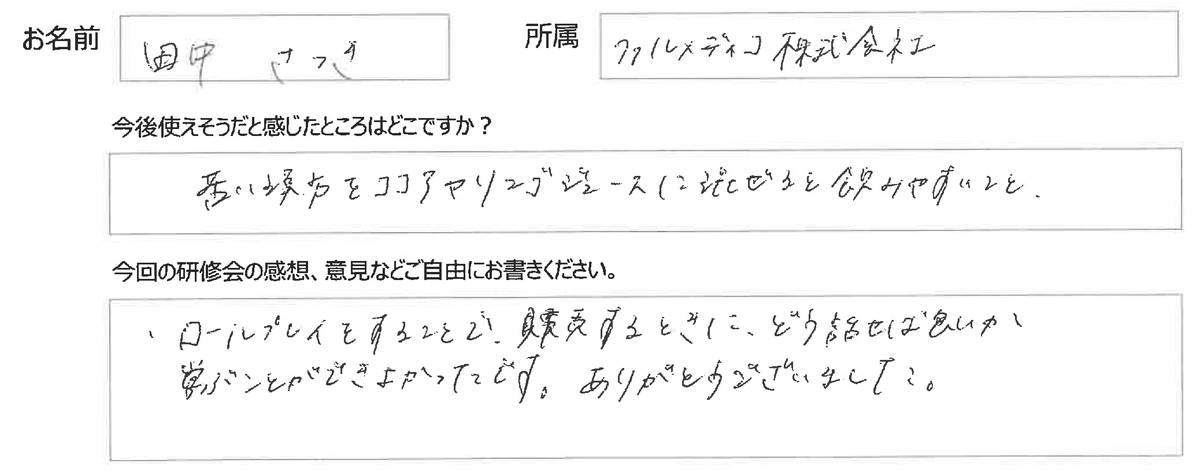 お名前 田中 さつき 所属 ファルメディコ株式会社
今後使えそうだと感じたところはどこですか？
苦い漢方をココアやリンゴジュースに混ぜると飲みやすいこと.
今回の研修会の感想、意見などご自由にお書きください。
・ロールプレイをすることで、購売するときに、どう話せば良いか
学ぶことができよかったです。ありがとうございました。